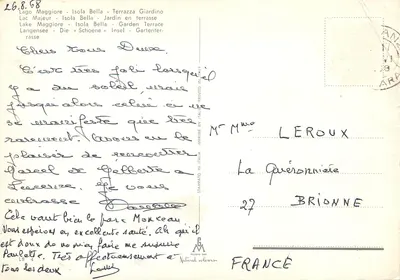 26.8.68
Lago Maggiore - Isola Bella - Terrazza Giardino
Lac Majeur - Isola Bella - Jardin en terrasse
Lake Maggiore - Isola Bella - Garden Terrace
Langensee - Die Schoene Insel - Garten
Chers tous Deux
C'est très joli lorsqu'il
y a du soleil, mais
jusqu'alors celui ci ne
se manifeste que très
rarement. Avons eu le
plaisir de rencontrer
Marcel et Gilberte a
Lucerne. Je vous
embrasse
Cela vaut bien le parc Monceau
Vous espérons en excellente santé. Ah qu'il
est doux de ne rien faire me susurre
Paulette. Très affectueusement à
tous les deux
Mr Mme LEROUX
La Quéronnière
27 BRIONNE
FRANCE